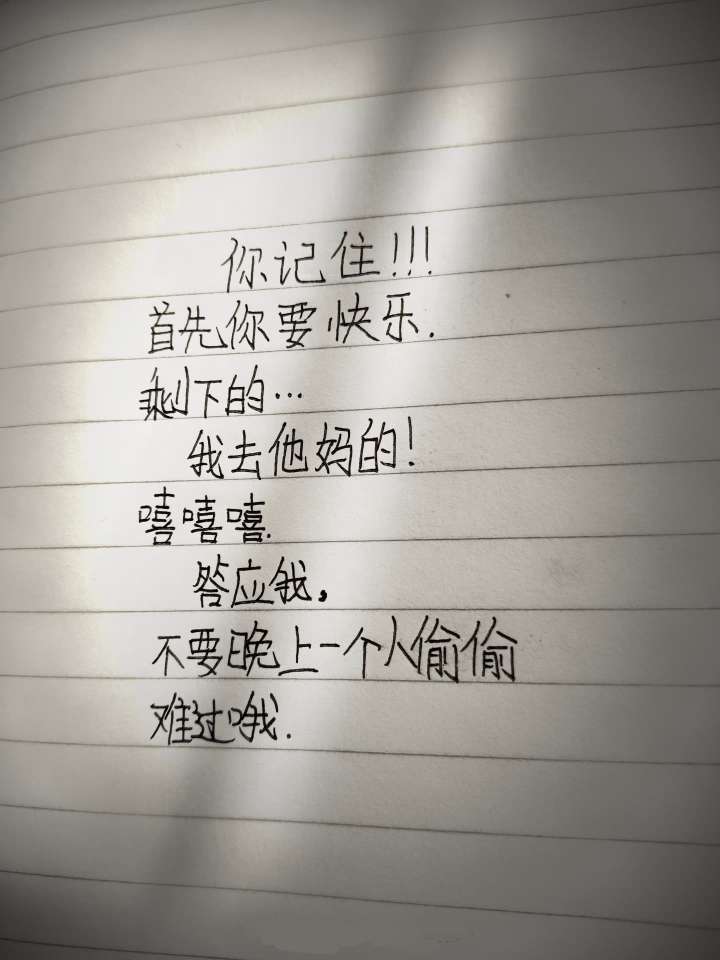 你记住!!!
首先你要快乐.
剩下的…
我去他妈的!
嘻嘻嘻.
答应我,
不要晚上一个人偷偷
难过哦.